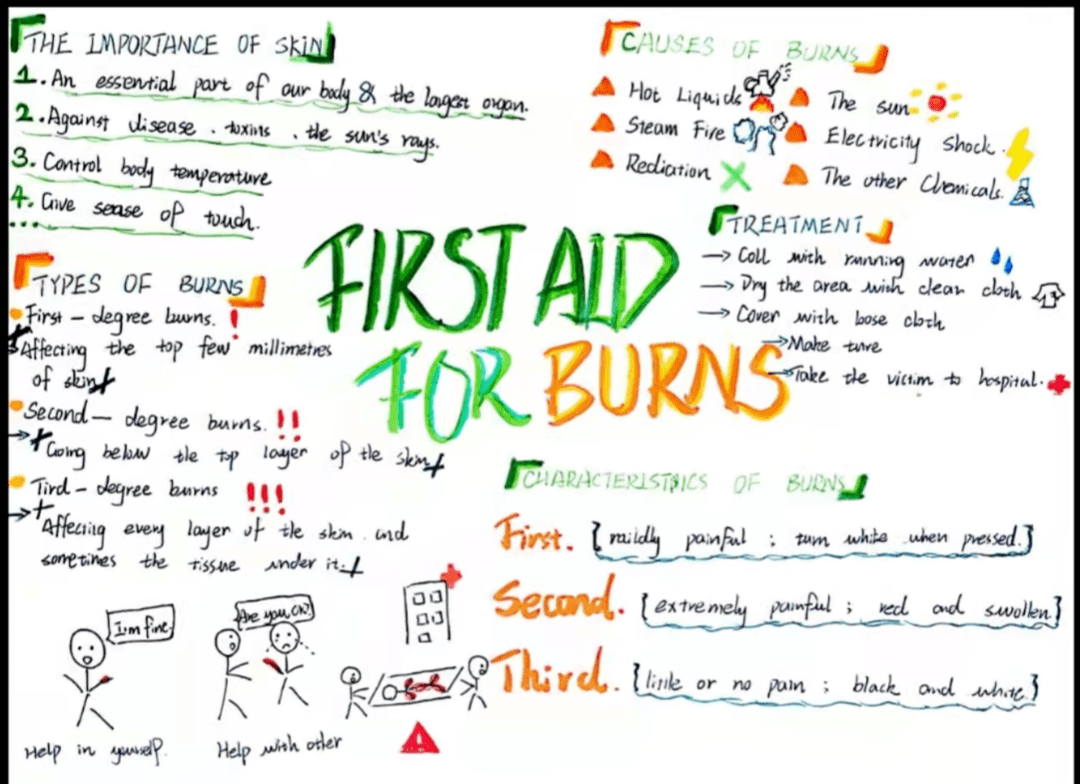 THE IMPORTANCE OF SKIN
1. An essential part of our body & the largest organ.
2. Against disease, toxins, the sun's rays.
3. Control body temperature
4. Give sease of touch.
...
TYPES OF BURNS
First - degree burns. !
Affecting the top few millimetres
of skin
Second - degree burns. !!
Going below the top layer of the skin
Tird - degree burns !!!
Affecting every layer of the skin and
sometimes the tissue under it.
I'm fine.
Are you OK?
Help in yourself.
Help with other
FIRST AID
FOR BURNS
CAUSES OF BURNS
Hot Liquids
The sun
Steam Fire
Electricity Shock.
Rediation
The other Chemicals.
TREATMENT
→ Coll with running water
→ Dry the area with clean cloth
→ Cover with loose cloth
→ Make ture
→ Take the victim to hospital.
CHARACTERISTSICS OF BURNS
First. {mildly painful ; turn white when pressed.}
Second. {extremely painful ; red and swollen}
Third. {little or no pain ; black and white.}